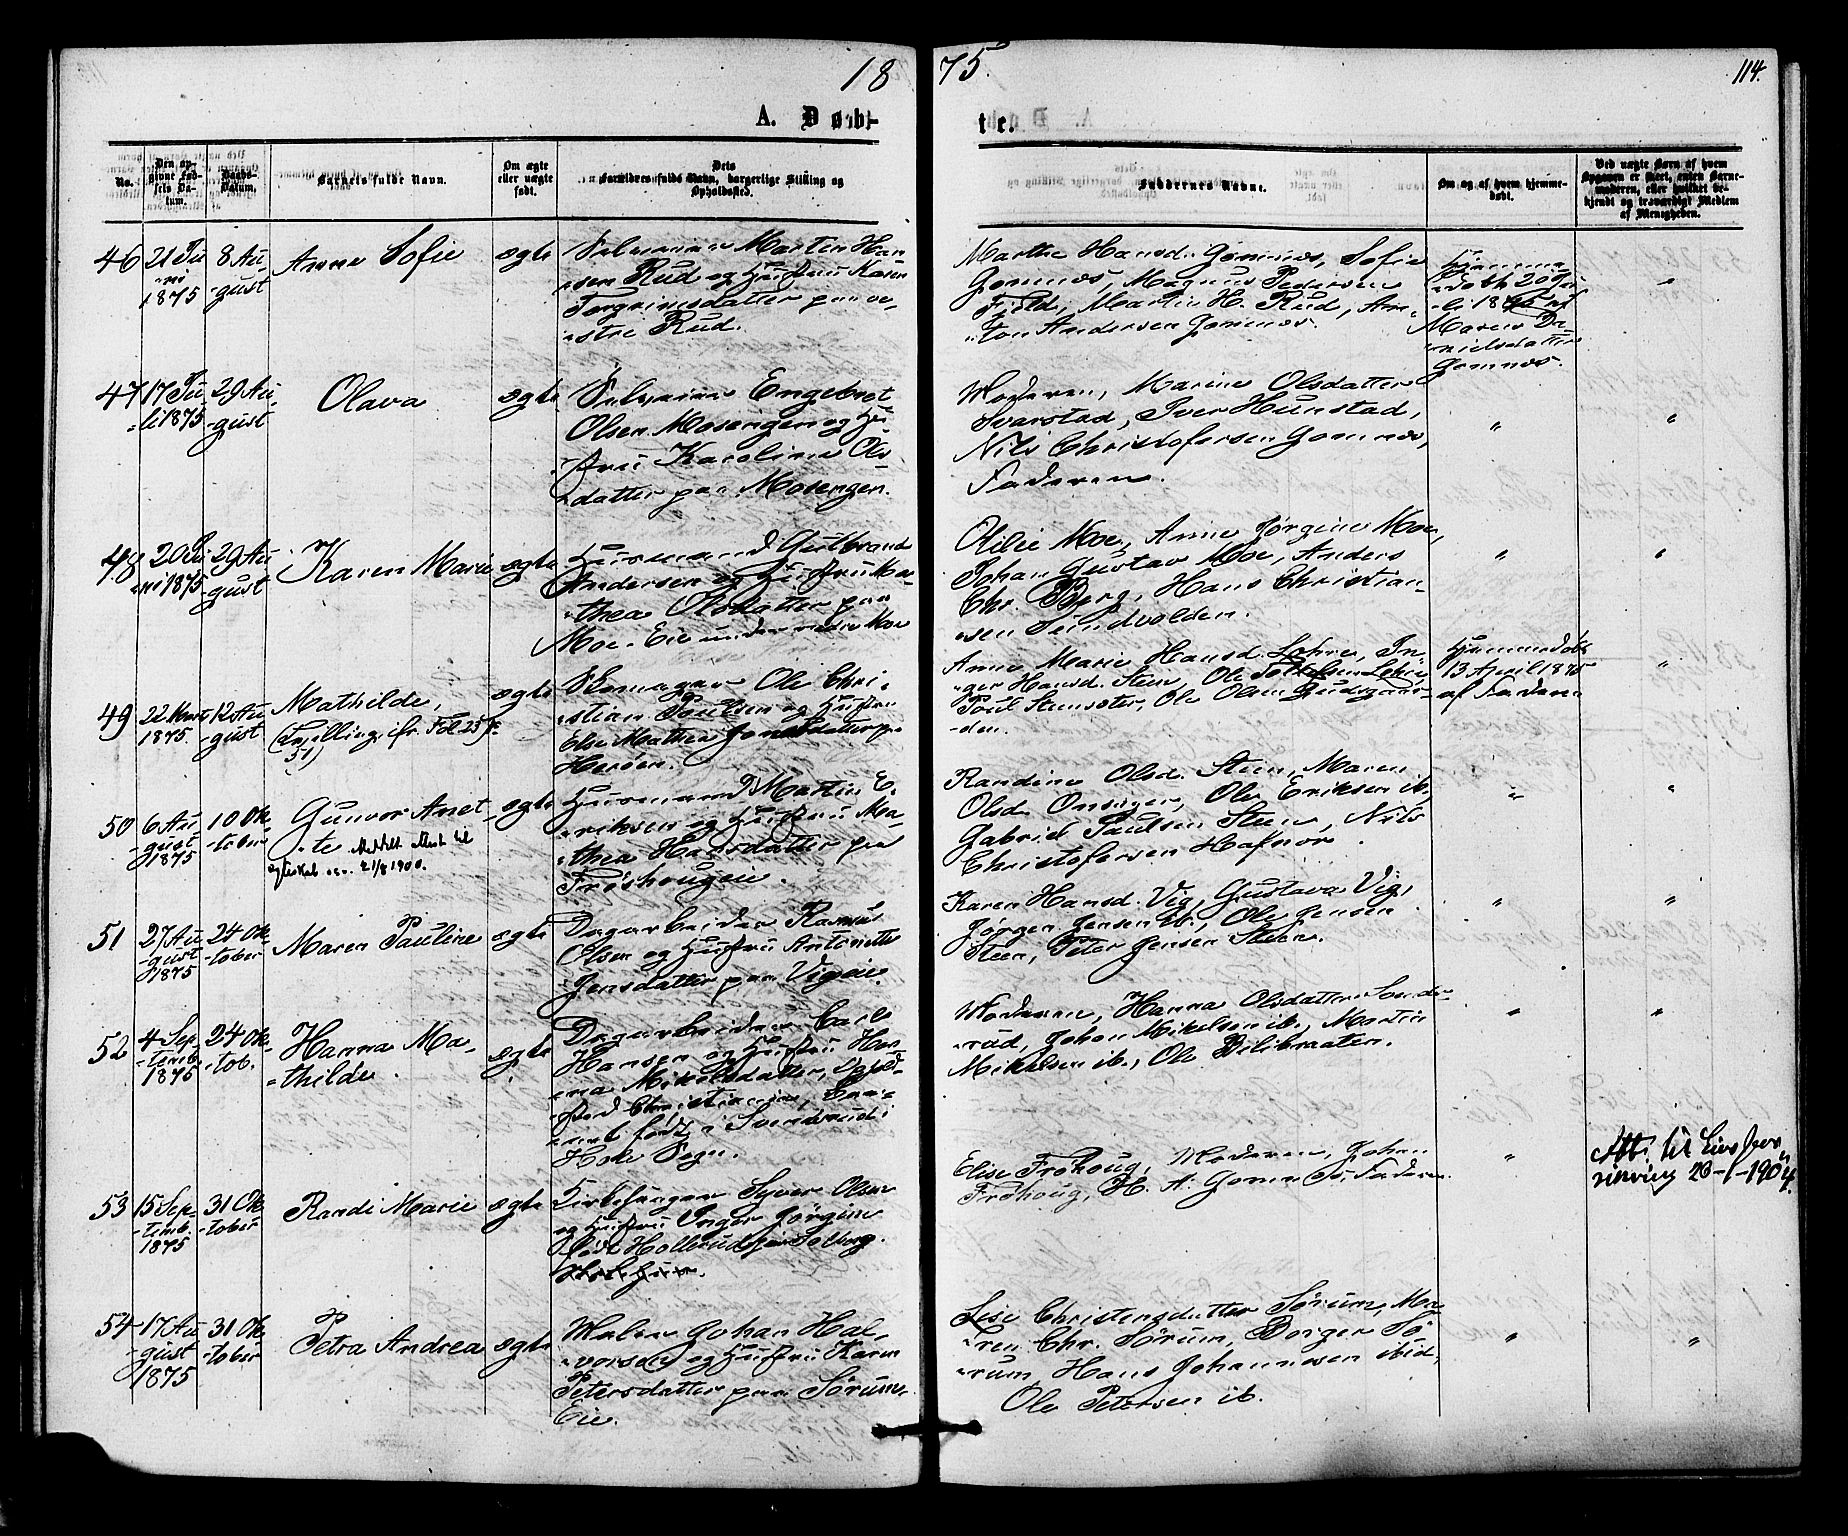 18
75.
114.
A. Døb-
te.
No.
Den op-
givne Fød-
sels Da-
tum.
Daabs-
Datum.
Barnets fulde Navn.
Om ægte
eller uægte
født.
Dets
Forældres fulde Navn, borgerlige Stilling og
Opholdssted.
Faddernes Navne.
Om og af hvem hjemme-
døbt.
Ved uægte Børn af hvem
Opgaven er skeet, enten Barne-
moderen, eller hvilket be-
kjendt og troværdigt Medlem
af Menigheden.
46
21 Ju
-ni
1875
8 Au
-gust
Anne Sofie
ægte
Selveier Martin Han
-sen Rud og Hustru Karen
Torgrimsdatter paa ve-
-stre Rud.
Marthe Hansd. Gomnæs, Sofie
Gomnæs, Magnus Pedersen
Fjeld, Martin H. Rud, An-
-ton Andersen Gomnæs.
Hjemme
-døbt 20 Ju-
-li 1875 af
Maren Da-
-nielsdatter
Gomnæs.
"
47
17 Ju
-li 1875
29 Au-
-gust
Olava
ægte
Selveier Engebret
Olsen Mosengen og Hu-
-stru Karoline Ols-
-datter paa Mosengen.
Moderen, Marine Olsdatter
Svarstad, Iver Hunstad,
Nils Christofersen Gomnæs,
Faderen.
"
"
48
20 Ju
-ni 1875
29 Au
-gust
Karen Marie
ægte
Husmand Gulbrand
Andersen og Hustru Ma-
-thea Olsdatter paa
Moe-Eie under nedre Moe
Olilie Moe, Anne Jørgine Moe,
Johan Gustav Moe, Anders
Chr. Berg, Hans Christian-
-sen Sundvolden.
"
"
49
22 Marts
1875.
12 Au
-gust
Mathilde,
(Tvilling, cfr. Fol 25
51)
ægte
Skomager Ole Chri-
-stian Paulsen og Hustru
Else Mathea Jonasdatter paa
Herøen.
Anne Marie Hansd. Lohre, In-
-ger Hansd. Steen, Ole Tollefsen Lohre
Poul Stensæter, Ole Olsen Gudsgaar-
-den.
Hjemmedøbt
13 April 1875
af Faderen
"
50
6 Au
-gust
1875
10 Ok
-tober
Gunvor Anet-
-te Meddelt Attest til
ægteskab 21/8 1900.
ægte
Husmand Martin E-
-riksen og Hustru Ma-
-thea Hansdatter paa
Frøshougen.
Randine Olsd. Steen, Maren
Olsd. Onsager, Ole Eriksen ib,
Gabriel Paulsen Steen, Nils
Christofersen Hafnor.
"
"
51
27 Au
-gust
1875
24 Ok
-tober
Maren Pauline
ægte
Dagarbeider Rasmus
Olsen og Hustru Antonette
Jensdatter paa Vigeie.
Karen Hansd. Vig, Gustava Vig,
Jørgen Jensen ib., Ole Jensen
Steen, Peter Jensen Steen.
"
"
52
4 Sep-
-temb.
1875
24 Ok-
-tob.
Hanna Ma-
-thilde.
ægte
Dagarbeider Carl
Hansen og Hustru Han-
-na Mikelsdatter, Opold
-sted Christiania, Bar-
-net født i Svendsrud i
Hole Sogn.
Moderen, Hanna Olsdatter Svends-
-rud, Johan Mikelsen ib., Martin
Mikelsen ib., Ole Bilibraaten.
"
"
53
15 Sep-
-temb.
1875
31 Ok
-tober
Randi Marie
ægte
Kirkesanger Syver Olsen
og Hustru Inger Jørgine
født Hollerud paa Solberg.
Elise Frøhoug, Moderen, Johan
Frøhoug, H. A. Gomnæs, Faderen.
"
Att. til Livsfor-
sikring 23-1-1904.
54
17 Au
-gust
1875
31 Ok
-tober
Petra Andrea
ægte
Maler Johan Hal-
-vorsen og Hustru Karen
Petersdatter paa Sørum-
Eie.
Lise Christensdatter Sørum, Ma-
-ren Chr. Sørum, Borger Sø-
-rum, Hans Johannesen ibid,
Ole Petersen ib.
"
"